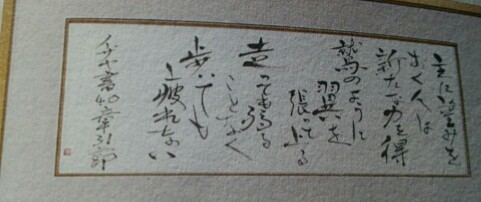 主に望みを
おく人は
新たな力を得
鷲のように
翼を
張って上る
走っても弱る
ことなく
歩いても
疲れない
イザヤ書40章31節